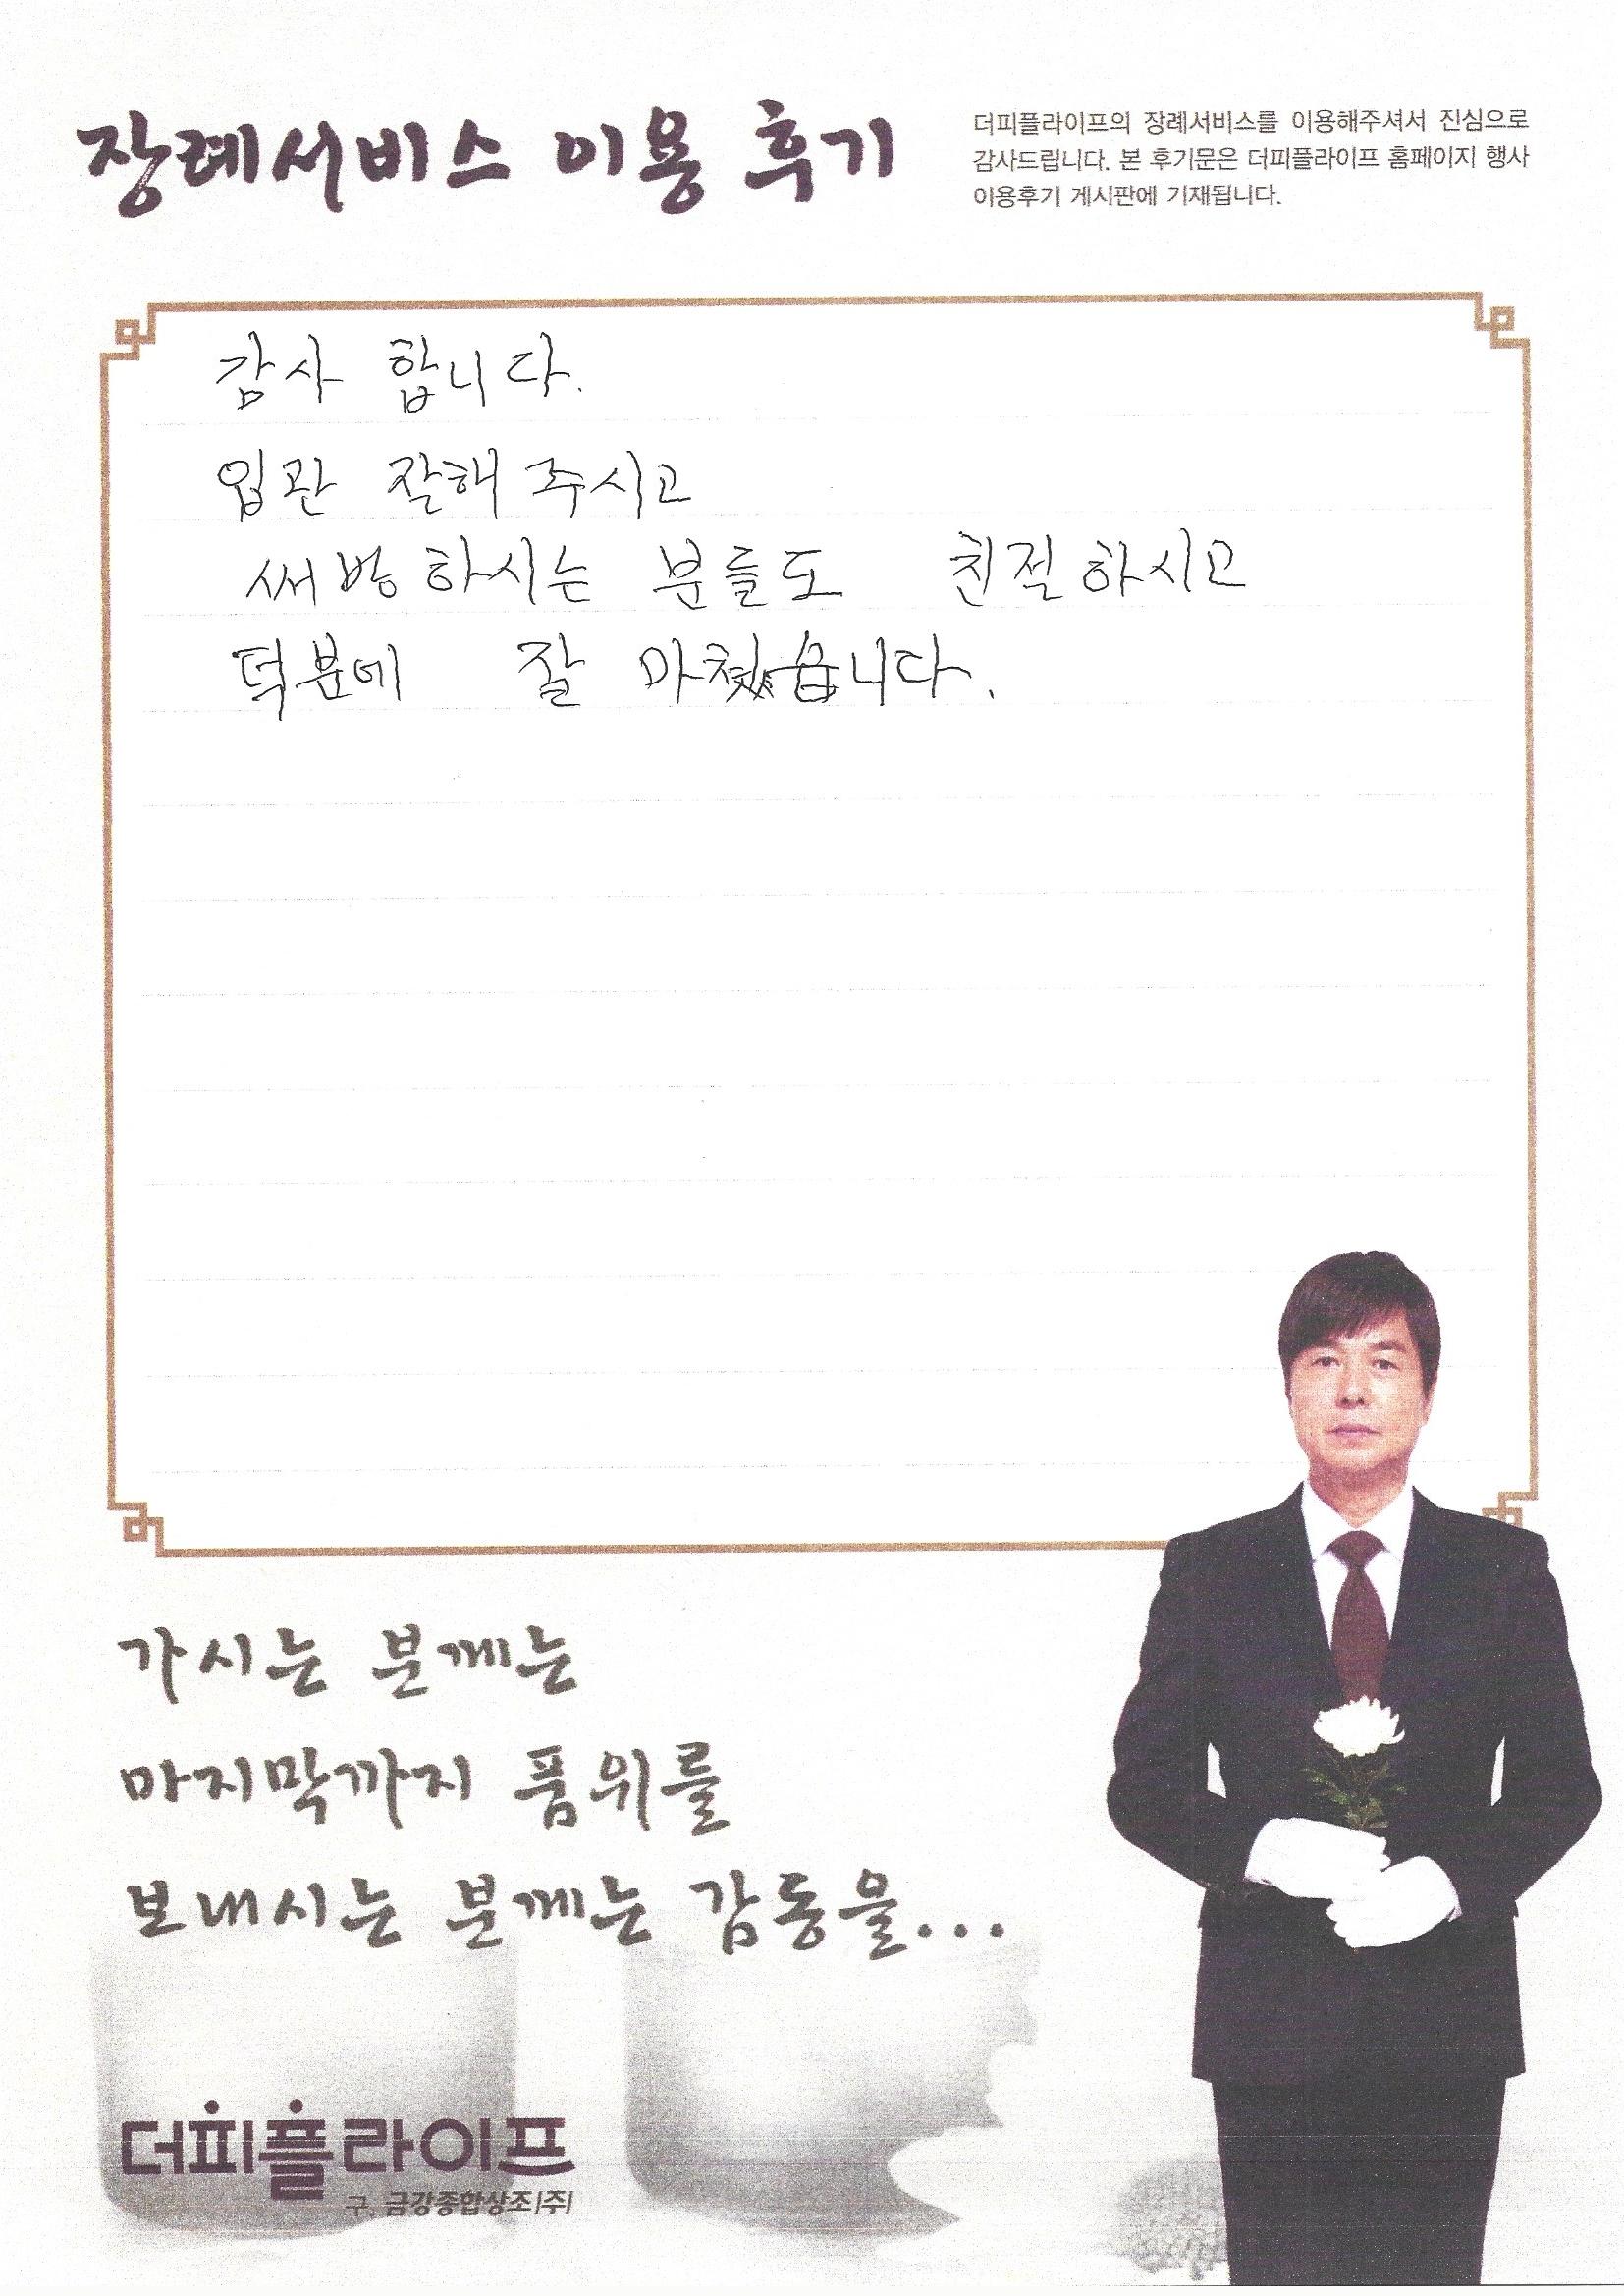 장례서비스 이용 후기
더피플라이프의 장례서비스를 이용해주셔서 진심으로
감사드립니다. 본 후기문은 더피플라이프 홈페이지 행사
이용후기 게시판에 기재됩니다.
감사 합니다.
입관 잘해 주시고
써빙하시는 분들도 친절하시고
덕분에 잘 마쳤습니다.
가시는 분께는
마지막까지 품위를
보내시는 분께는 감동을...
더피플라이프
구. 금강종합상조(주)